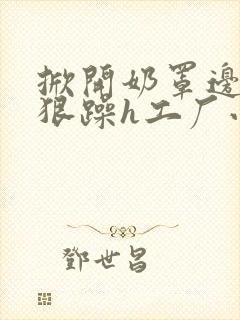 掀開奶罩邊
狠躁h工厂
鄧世昌